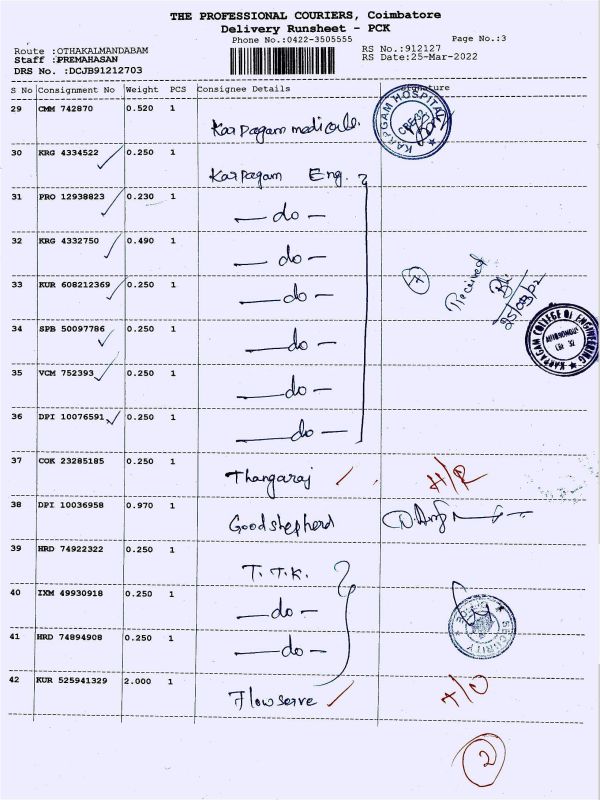 THE PROFESSIONAL COURIERS, Coimbatore
Delivery Runsheet - PCK
Phone No.:0422-3505555 Page No.:3
Route :OTHAKALMANDABAM RS No.:912127
Staff :PREMAHASAN RS Date:25-Mar-2022
DRS No. :DCJB91212703
S No Consignment No Weight PCS Consignee Details Signature
29 CMM 742870 0.520 1 Karpagam medicals.
KARPAGAM HOSPITAL
CBE-32
30 KRG 4334522 0.250 1 Karpagam Eng.
31 PRO 12938823 0.230 1 — do —
32 KRG 4332750 0.490 1 — do —
33 KUR 608212369 0.250 1 — do —
7
Received
25/03/22
34 SPB 50097786 0.250 1 — do —
KARPAGAM COLLEGE OF ENGINEERING
AUTONOMOUS
CBE 32
35 VCM 752393 0.250 1 — do —
36 DPI 10076591 0.250 1 — do —
37 COK 23285185 0.250 1 Thangaraj H/R
38 DPI 10036958 0.970 1 Goodshepherd
39 HRD 74922322 0.250 1 T.T.K.
40 IXM 49930918 0.250 1 — do —
SECURITY
41 HRD 74894908 0.250 1 — do —
42 KUR 525941329 2.000 1 Flowserve
2